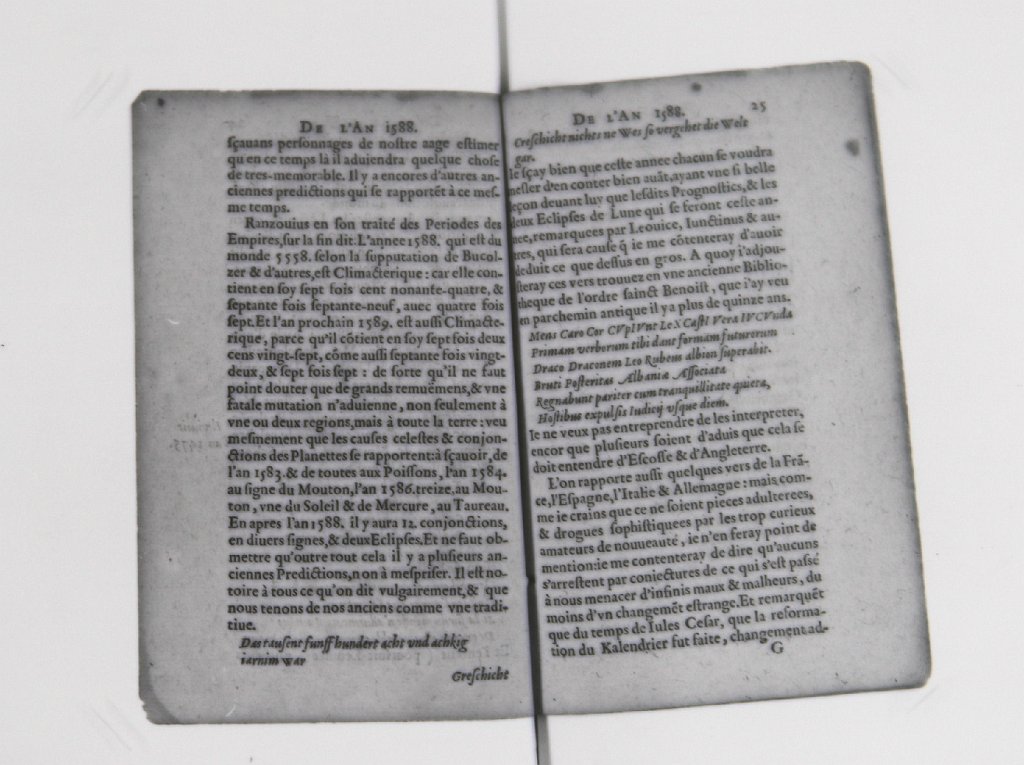 DE L'AN 1588.
sçauans personnages de nostre aage estimer
qu'en ce temps là il aduiendra quelque chose
de tres-memorable. Il y a encores d'autres an-
ciennes predictions qui se rapportẽt à ce mes-
me temps.
Ranzouius en son traité des Periodes des
Empires, sur la fin dit. L'annee 1588. qui est du
monde 5558. selon la supputation de Bucol-
zer & d'autres, est Climacterique : car elle con-
tient en soy sept fois cent nonante-quatre, &
septante fois septante-neuf, auec quatre fois
sept. Et l'an prochain 1589. est aussi Climacte-
rique, parce qu'il cõtient en soy sept fois deux
cens vingt-sept, cõme aussi septante fois vingt-
deux, & sept fois sept : de sorte qu'il ne faut
point douter que de grands remuëmens, & vne
fatale mutation n'aduienne, non seulement à
vne ou deux regions, mais à toute la terre : veu
mesmement que les causes celestes & conjon-
ctions des Planettes se rapportent: à sçauoir, de
l'an 1583. & de toutes aux Poissons, l'an 1584.
au signe du Mouton, l'an 1586. treize, au Mou-
ton, vne du Soleil & de Mercure, au Taureau.
En apres l'an 1588. il y aura 12. conjonctions,
en diuers signes, & deux Eclipses. Et ne faut ob-
mettre qu'outre tout cela il y a plusieurs an-
ciennes Predictions, non à mespriser. Il est no-
toire à tous ce qu'on dit vulgairement, & que
nous tenons de nos anciens comme vne tradi-
tiue.
Das tausent funff hundert acht vnd achkig
iarnim war
Greschicht
DE L'AN 1588. 25
Creschicht nichts ne Wes so vergehet die Welt
gar.
Ie sçay bien que ceste annee chacun se voudra
mesler d'en conter bien auãt, ayant vne si belle
leçon deuant luy que lesdits Prognostics, & les
deux Eclipses de Lune qui se feront ceste an-
nee, remarquees par Leouice, Iunctinus & au-
tres, qui sera cause q̃ ie me cõtenteray d'auoir
deduit ce que dessus en gros. A quoy i'adjou-
steray ces vers trouuez en vne ancienne Biblio-
theque de l'ordre sainct Benoist, que i'ay veu
en parchemin antique il y a plus de quinze ans.
Mens Caro Cor CVpIVnt LeX CastI Vera IVCVnda
Primam verborum tibi dant formam futurorum
Draco Draconem Leo Rubens albion superabit.
Bruti Posteritas Albaniæ Associata
Regnabunt pariter cum tranquillitate quieta,
Hostibus expulsis Iudicij vsque diem.
Ie ne veux pas entreprendre de les interpreter,
encor que plusieurs soient d'aduis que cela se
doit entendre d'Escosse & d'Angleterre.
L'on rapporte aussi quelques vers de la Frã-
ce, l'Espagne, l'Italie & Allemagne : mais com-
me ie crains que ce ne soient pieces adulterees,
& drogues sophistiquees par les trop curieux
amateurs de nouueauté, ie n'en feray point de
mention: ie me contenteray de dire qu'aucuns
s'arrestent par coniectures de ce qui s'est passé
à nous menacer d'infinis maux & malheurs, du
moins d'vn changemẽt estrange. Et remarquẽt
que du temps de Iules Cesar, que la reforma-
tion du Kalendrier fut faite, changement ad-
G